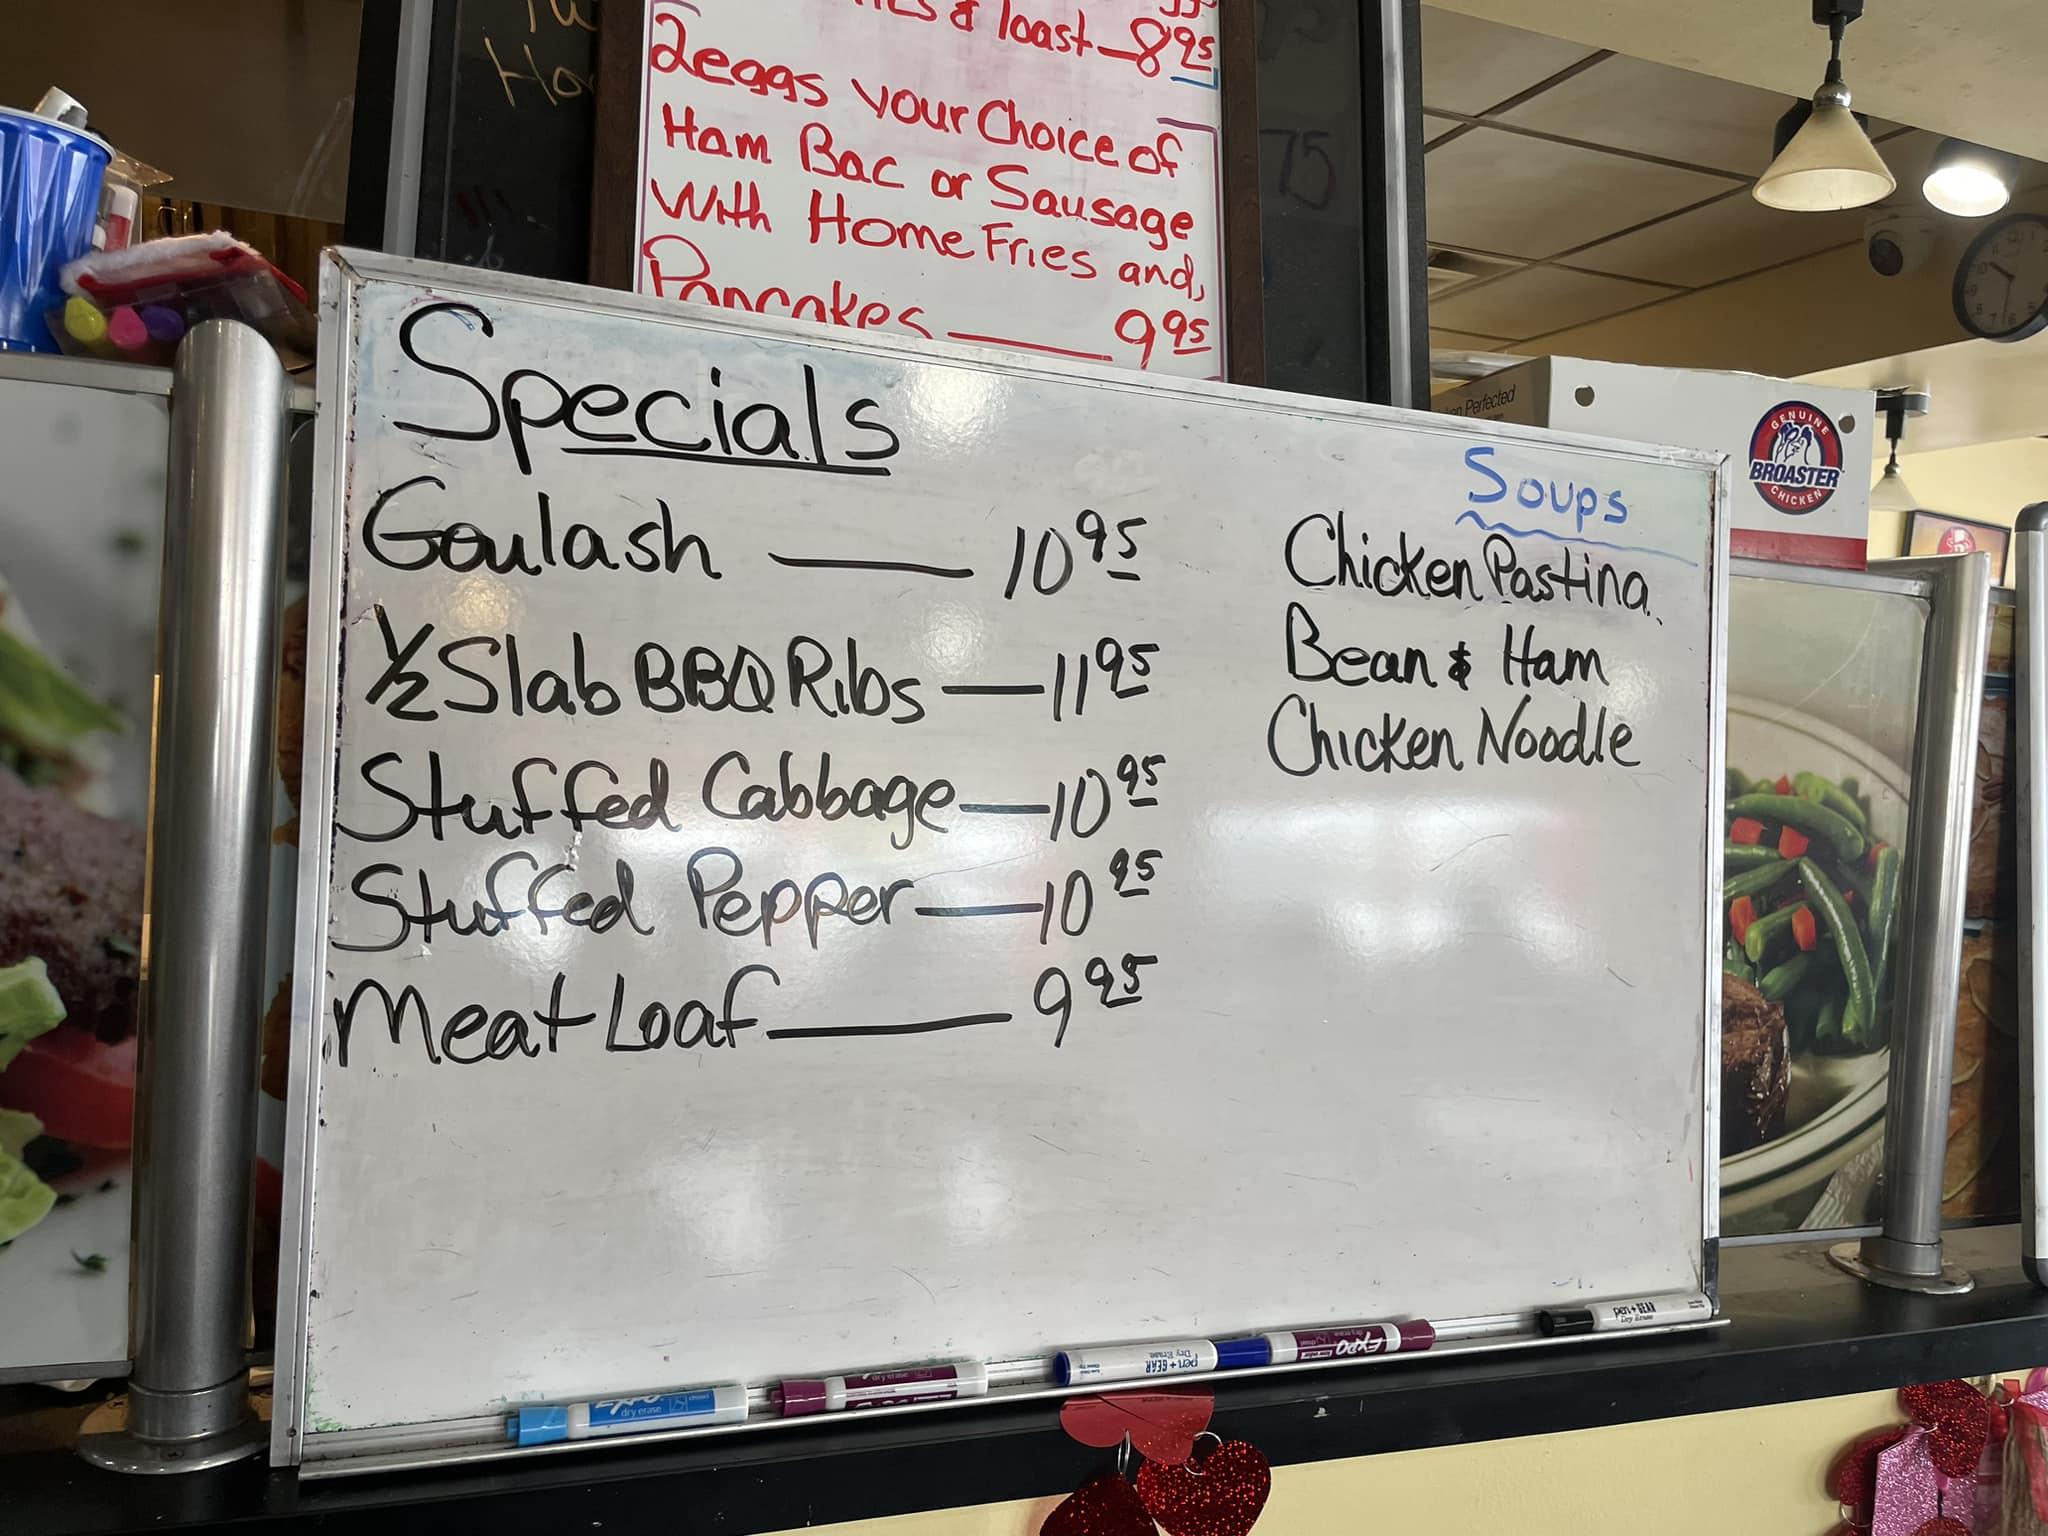 & Toast — 8 95
2 eggs your Choice of
Ham Bac or Sausage
With Home Fries and
Pancakes — 9 95
75
Specials
Goulash — 10 95
1/2 Slab BBQ Ribs — 11 95
Stuffed Cabbage — 10 95
Stuffed Pepper — 10 95
Meat Loaf — 9 95
Soups
Chicken Pastina
Bean & Ham
Chicken Noodle
Perfected
GENUINE
BROASTER
CHICKEN
EXPO
dry erase
pen + GEAR
Dry Erase
EXPO
pen + GEAR
Dry Erase